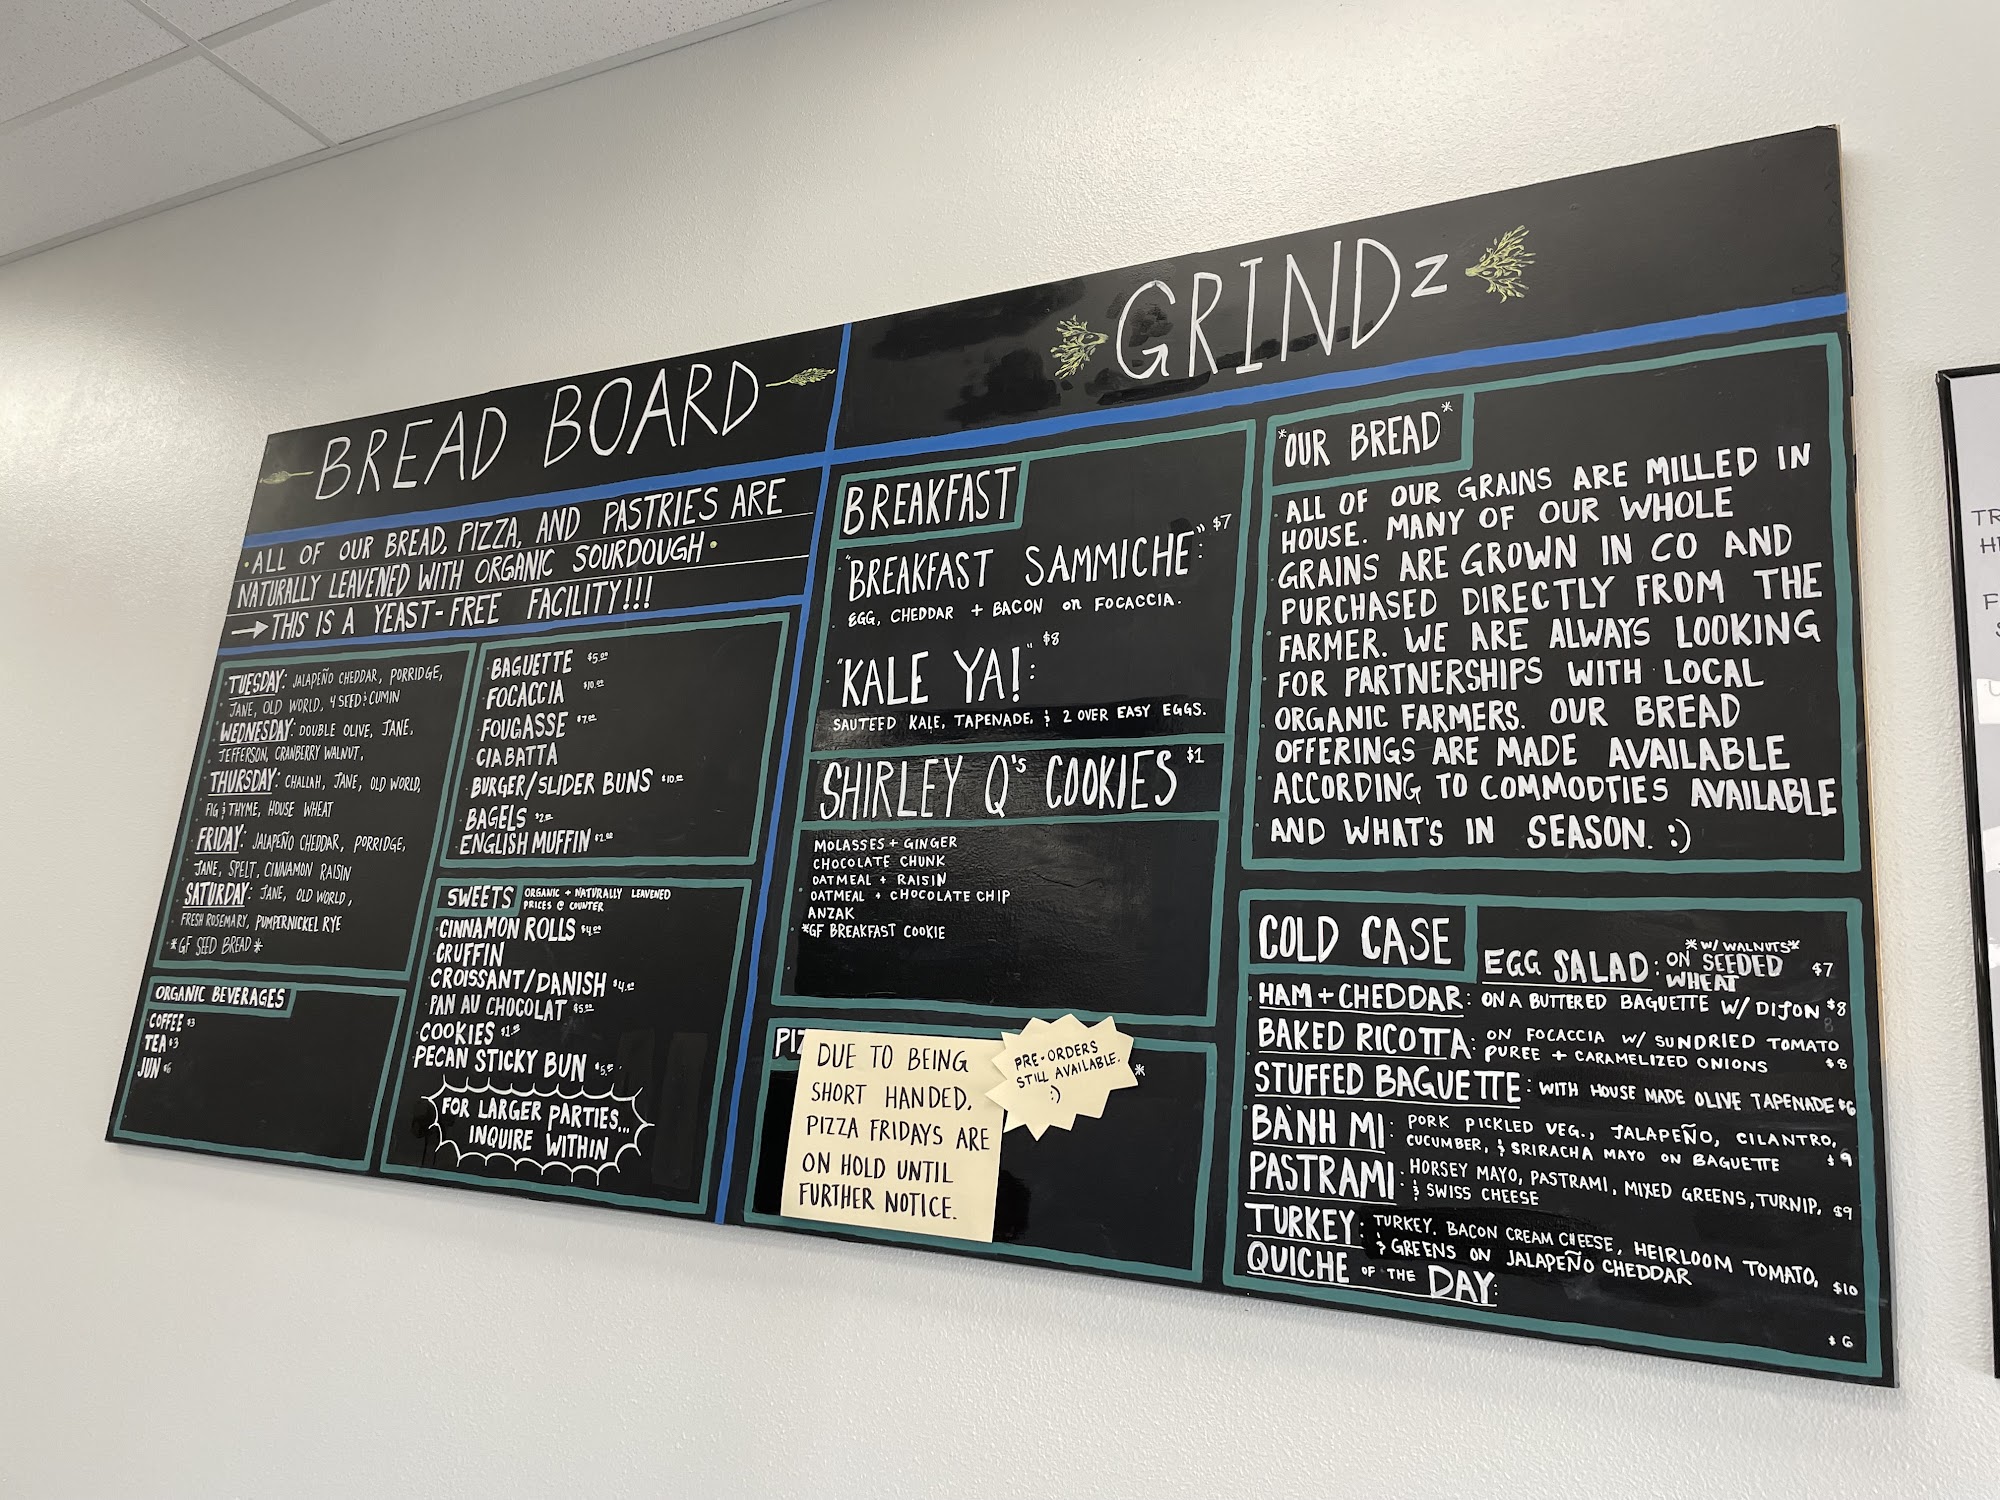 BREAD BOARD
• ALL OF OUR BREAD, PIZZA, AND PASTRIES ARE
NATURALLY LEAVENED WITH ORGANIC SOURDOUGH •
→ THIS IS A YEAST-FREE FACILITY!!!
TUESDAY: JALAPEÑO CHEDDAR, PORRIDGE,
JANE, OLD WORLD, 4 SEED & CUMIN
WEDNESDAY: DOUBLE OLIVE, JANE,
JEFFERSON, CRANBERRY WALNUT,
THURSDAY: CHALLAH, JANE, OLD WORLD,
FIG & THYME, HOUSE WHEAT
FRIDAY: JALAPEÑO CHEDDAR, PORRIDGE,
JANE, SPELT, CINNAMON RAISIN
SATURDAY: JANE, OLD WORLD,
FRESH ROSEMARY, PUMPERNICKEL RYE
*GF SEED BREAD*
ORGANIC BEVERAGES
COFFEE $3
TEA $3
JUN $6
BAGUETTE $5.00
FOCACCIA $10.00
FOUGASSE $7.00
CIABATTA
BURGER/SLIDER BUNS $10.00
BAGELS $2.00
ENGLISH MUFFIN $2.00
SWEETS ORGANIC + NATURALLY LEAVENED
PRICES @ COUNTER
CINNAMON ROLLS $4.00
CRUFFIN
CROISSANT/DANISH $4.00
PAN AU CHOCOLAT $5.00
COOKIES $1.00
PECAN STICKY BUN $5.50
FOR LARGER PARTIES...
INQUIRE WITHIN
GRINDz
BREAKFAST
"BREAKFAST SAMMICHE": $7
EGG, CHEDDAR + BACON on FOCACCIA.
"KALE YA!": $8
SAUTEED KALE, TAPENADE, & 2 OVER EASY EGGS.
SHIRLEY Q's COOKIES $1
MOLASSES + GINGER
CHOCOLATE CHUNK
OATMEAL + RAISIN
OATMEAL + CHOCOLATE CHIP
ANZAK
*GF BREAKFAST COOKIE
DUE TO BEING
SHORT HANDED,
PIZZA FRIDAYS ARE
ON HOLD UNTIL
FURTHER NOTICE.
PRE-ORDERS
STILL AVAILABLE.
:)
*OUR BREAD*
ALL OF OUR GRAINS ARE MILLED IN
HOUSE. MANY OF OUR WHOLE
GRAINS ARE GROWN IN CO AND
PURCHASED DIRECTLY FROM THE
FARMER. WE ARE ALWAYS LOOKING
FOR PARTNERSHIPS WITH LOCAL
ORGANIC FARMERS. OUR BREAD
OFFERINGS ARE MADE AVAILABLE
ACCORDING TO COMMODTIES AVAILABLE
AND WHAT'S IN SEASON. :)
COLD CASE
EGG SALAD: ON SEEDED WHEAT *W/ WALNUTS* $7
HAM + CHEDDAR: ON A BUTTERED BAGUETTE W/ DIJON $8
BAKED RICOTTA: ON FOCACCIA W/ SUNDRIED TOMATO
PUREE + CARAMELIZED ONIONS $8
STUFFED BAGUETTE: WITH HOUSE MADE OLIVE TAPENADE $6
BÀNH MI: PORK PICKLED VEG., JALAPEÑO, CILANTRO,
CUCUMBER, & SRIRACHA MAYO ON BAGUETTE $9
PASTRAMI: HORSEY MAYO, PASTRAMI, MIXED GREENS, TURNIP,
& SWISS CHEESE $9
TURKEY: TURKEY, BACON CREAM CHEESE, HEIRLOOM TOMATO,
& GREENS ON JALAPEÑO CHEDDAR $10
QUICHE OF THE DAY:
$6